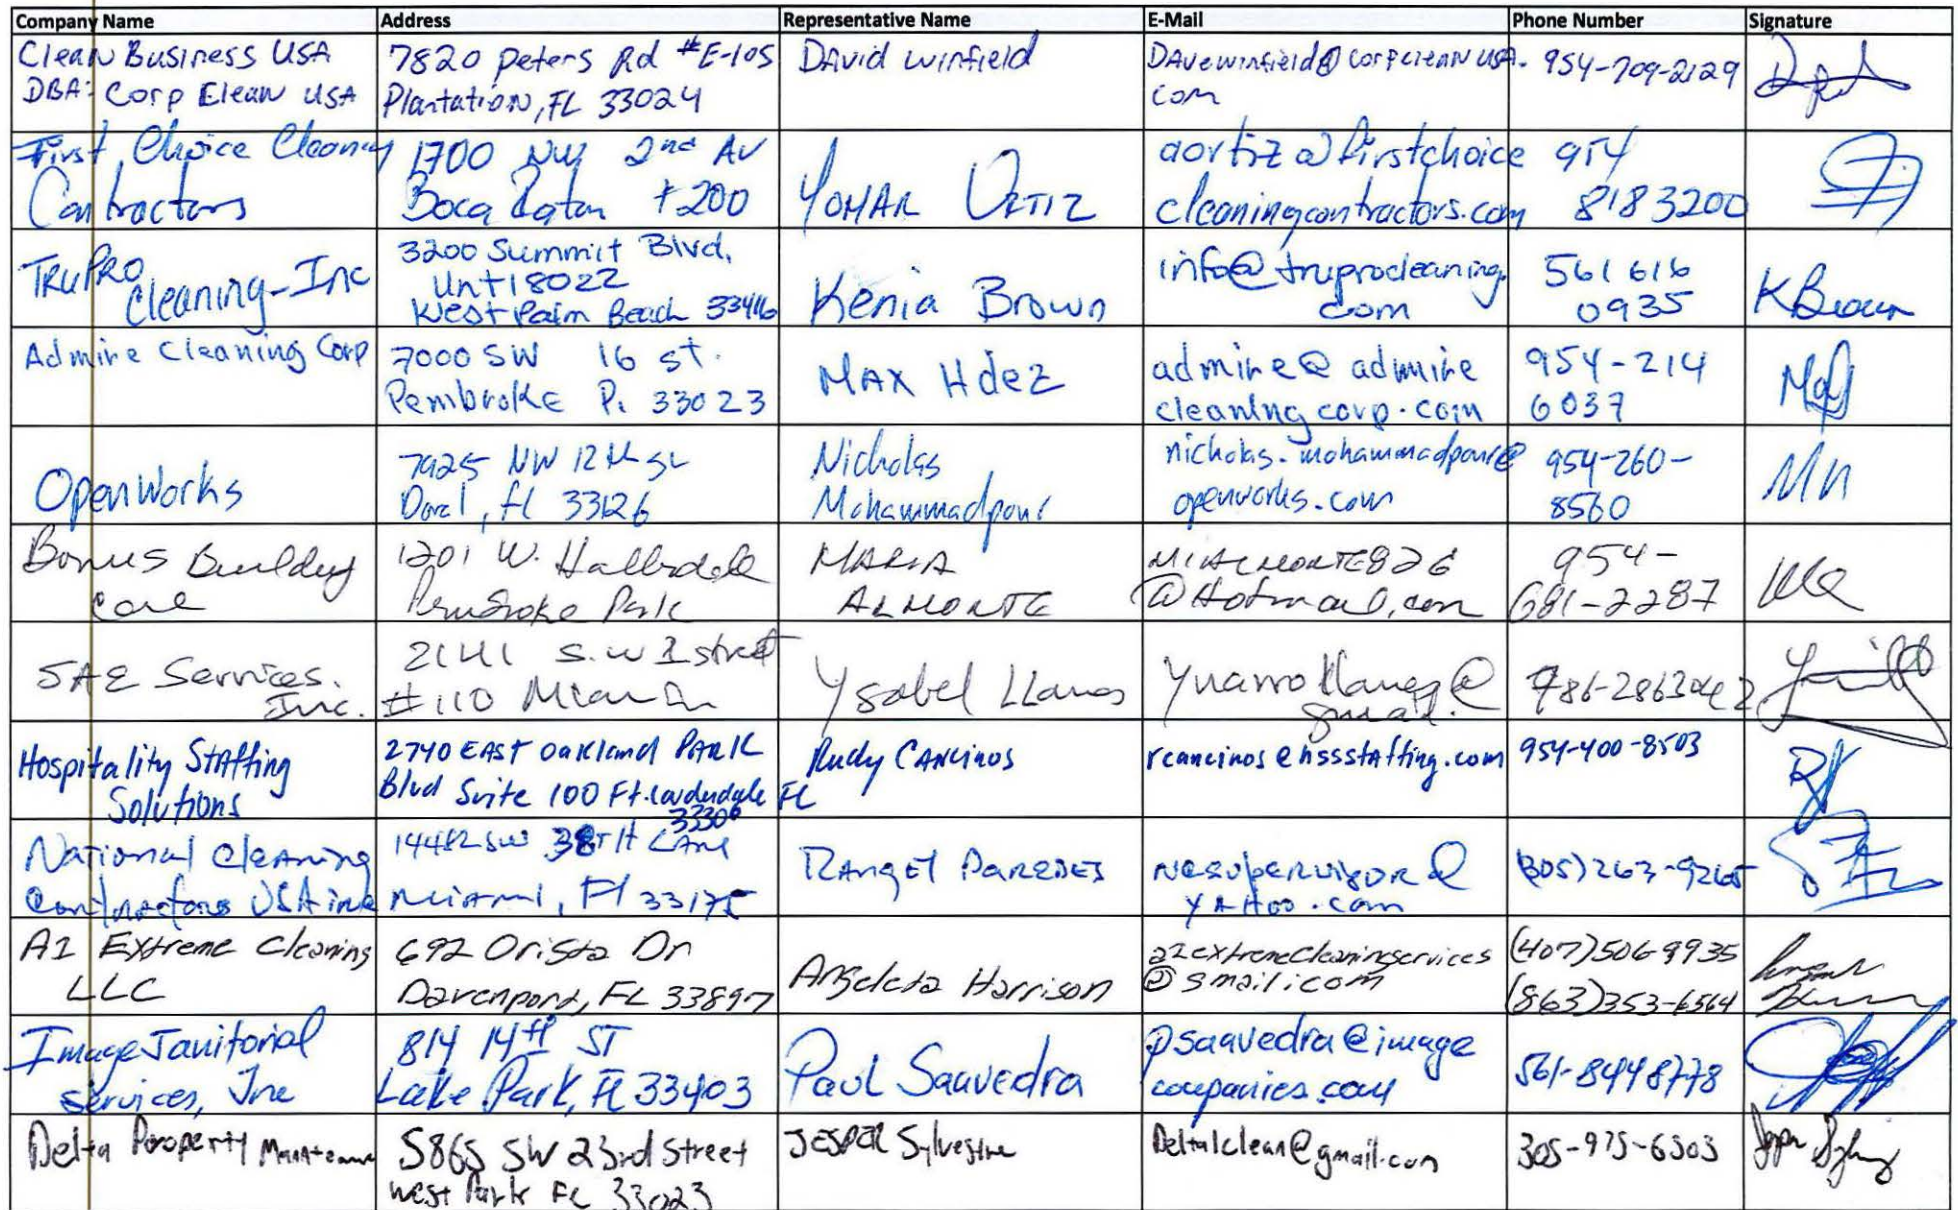 Company Name Address Representative Name E-Mail Phone Number Signature
Clean Business USA
DBA: Corp Elean USA
7820 Peters Rd #E-105
Plantation, FL 33024
David Winfield
DAvewinfield@corpcleanUSA.
com
954-709-2129
First Choice Cleaning
Contractors
1700 NW 2nd Av
Boca Raton #200
YOMAR ORTIZ
aortiz@firstchoice
cleaningcontractors.com
954
8183200
TRUPRO
Cleaning-Inc
3200 Summit Blvd,
Unt18022
West Palm Beach 33416
Kenia Brown
info@truprocleaning.
com
561 616
0935
KBrown
Admire Cleaning Corp
7000 SW 16 st.
Pembroke P. 33023
MAX Hdez
admire@admire
cleaningcorp.com
954-214
6037
OpenWorks
7925 NW 12th St
Doral, fl 33126
Nicholas
Mohammadpour
nicholas.mohammadpour@
openworks.com
954-260-
8560
Bonus Building
Care
1201 W. Hallandale
Pembroke Park
MARIA
ALMONTE
@Hotmail.com
954-
681-2287
SAE Services.
Inc.
2141 S.W 1 street
#110
Ysabel LLanos
gmail.
Hospitality Staffing
Solutions
2740 EAST Oakland PARK
Blvd Suite 100 Ft.lauderdale FL
33306
Rudy CANCINOS
rcancinos@hssstaffing.com
954-400-8503
National Cleaning
Contractors USA inc
14482 SW 38TH LANE
Miami, Fl 33175
RANGEL PAREDES
NCSUPERVISOR@
YAHOO.com
(305)263-9265
A1 Extreme Cleaning
LLC
692 Orista Dr
Davenport, FL 33897
Harrison
a1extremecleaningservices
@gmail.com
(407)506-9935
(863)353-6564
Image Janitorial
Services, Inc
814 14th ST
Lake Park, FL 33403
Paul Saavedra
psaavedra@image
companies.com
561-8448778
Delta Property
5865 SW 23rd Street
West Park FL 33023
JESPER Sylvestre
Delta1clean@gmail.com
305-975-6503